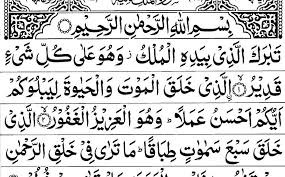 بِسْمِ اللّٰهِ الرَّحْمٰنِ الرَّحِيْمِ
تَبٰرَكَ الَّذِىْ بِيَدِهِ الْمُلْكُ ز وَهُوَ عَلٰى كُلِّ شَىْءٍ
قَدِيْرُ ۙ﴿۱﴾ اِۨلَّذِىْ خَلَقَ الْمَوْتَ وَالْحَيٰوةَ لِيَبْلُوَكُمْ
اَيُّكُمْ اَحْسَنُ عَمَلًا ؕ وَهُوَ الْعَزِيْزُ الْغَفُوْرُ ۙ﴿۲﴾ الَّذِىْ
خَلَقَ سَبْعَ سَمٰوٰتٍ طِبَاقًا ؕ مَا تَرٰى فِىْ خَلْقِ الرَّحْمٰنِ